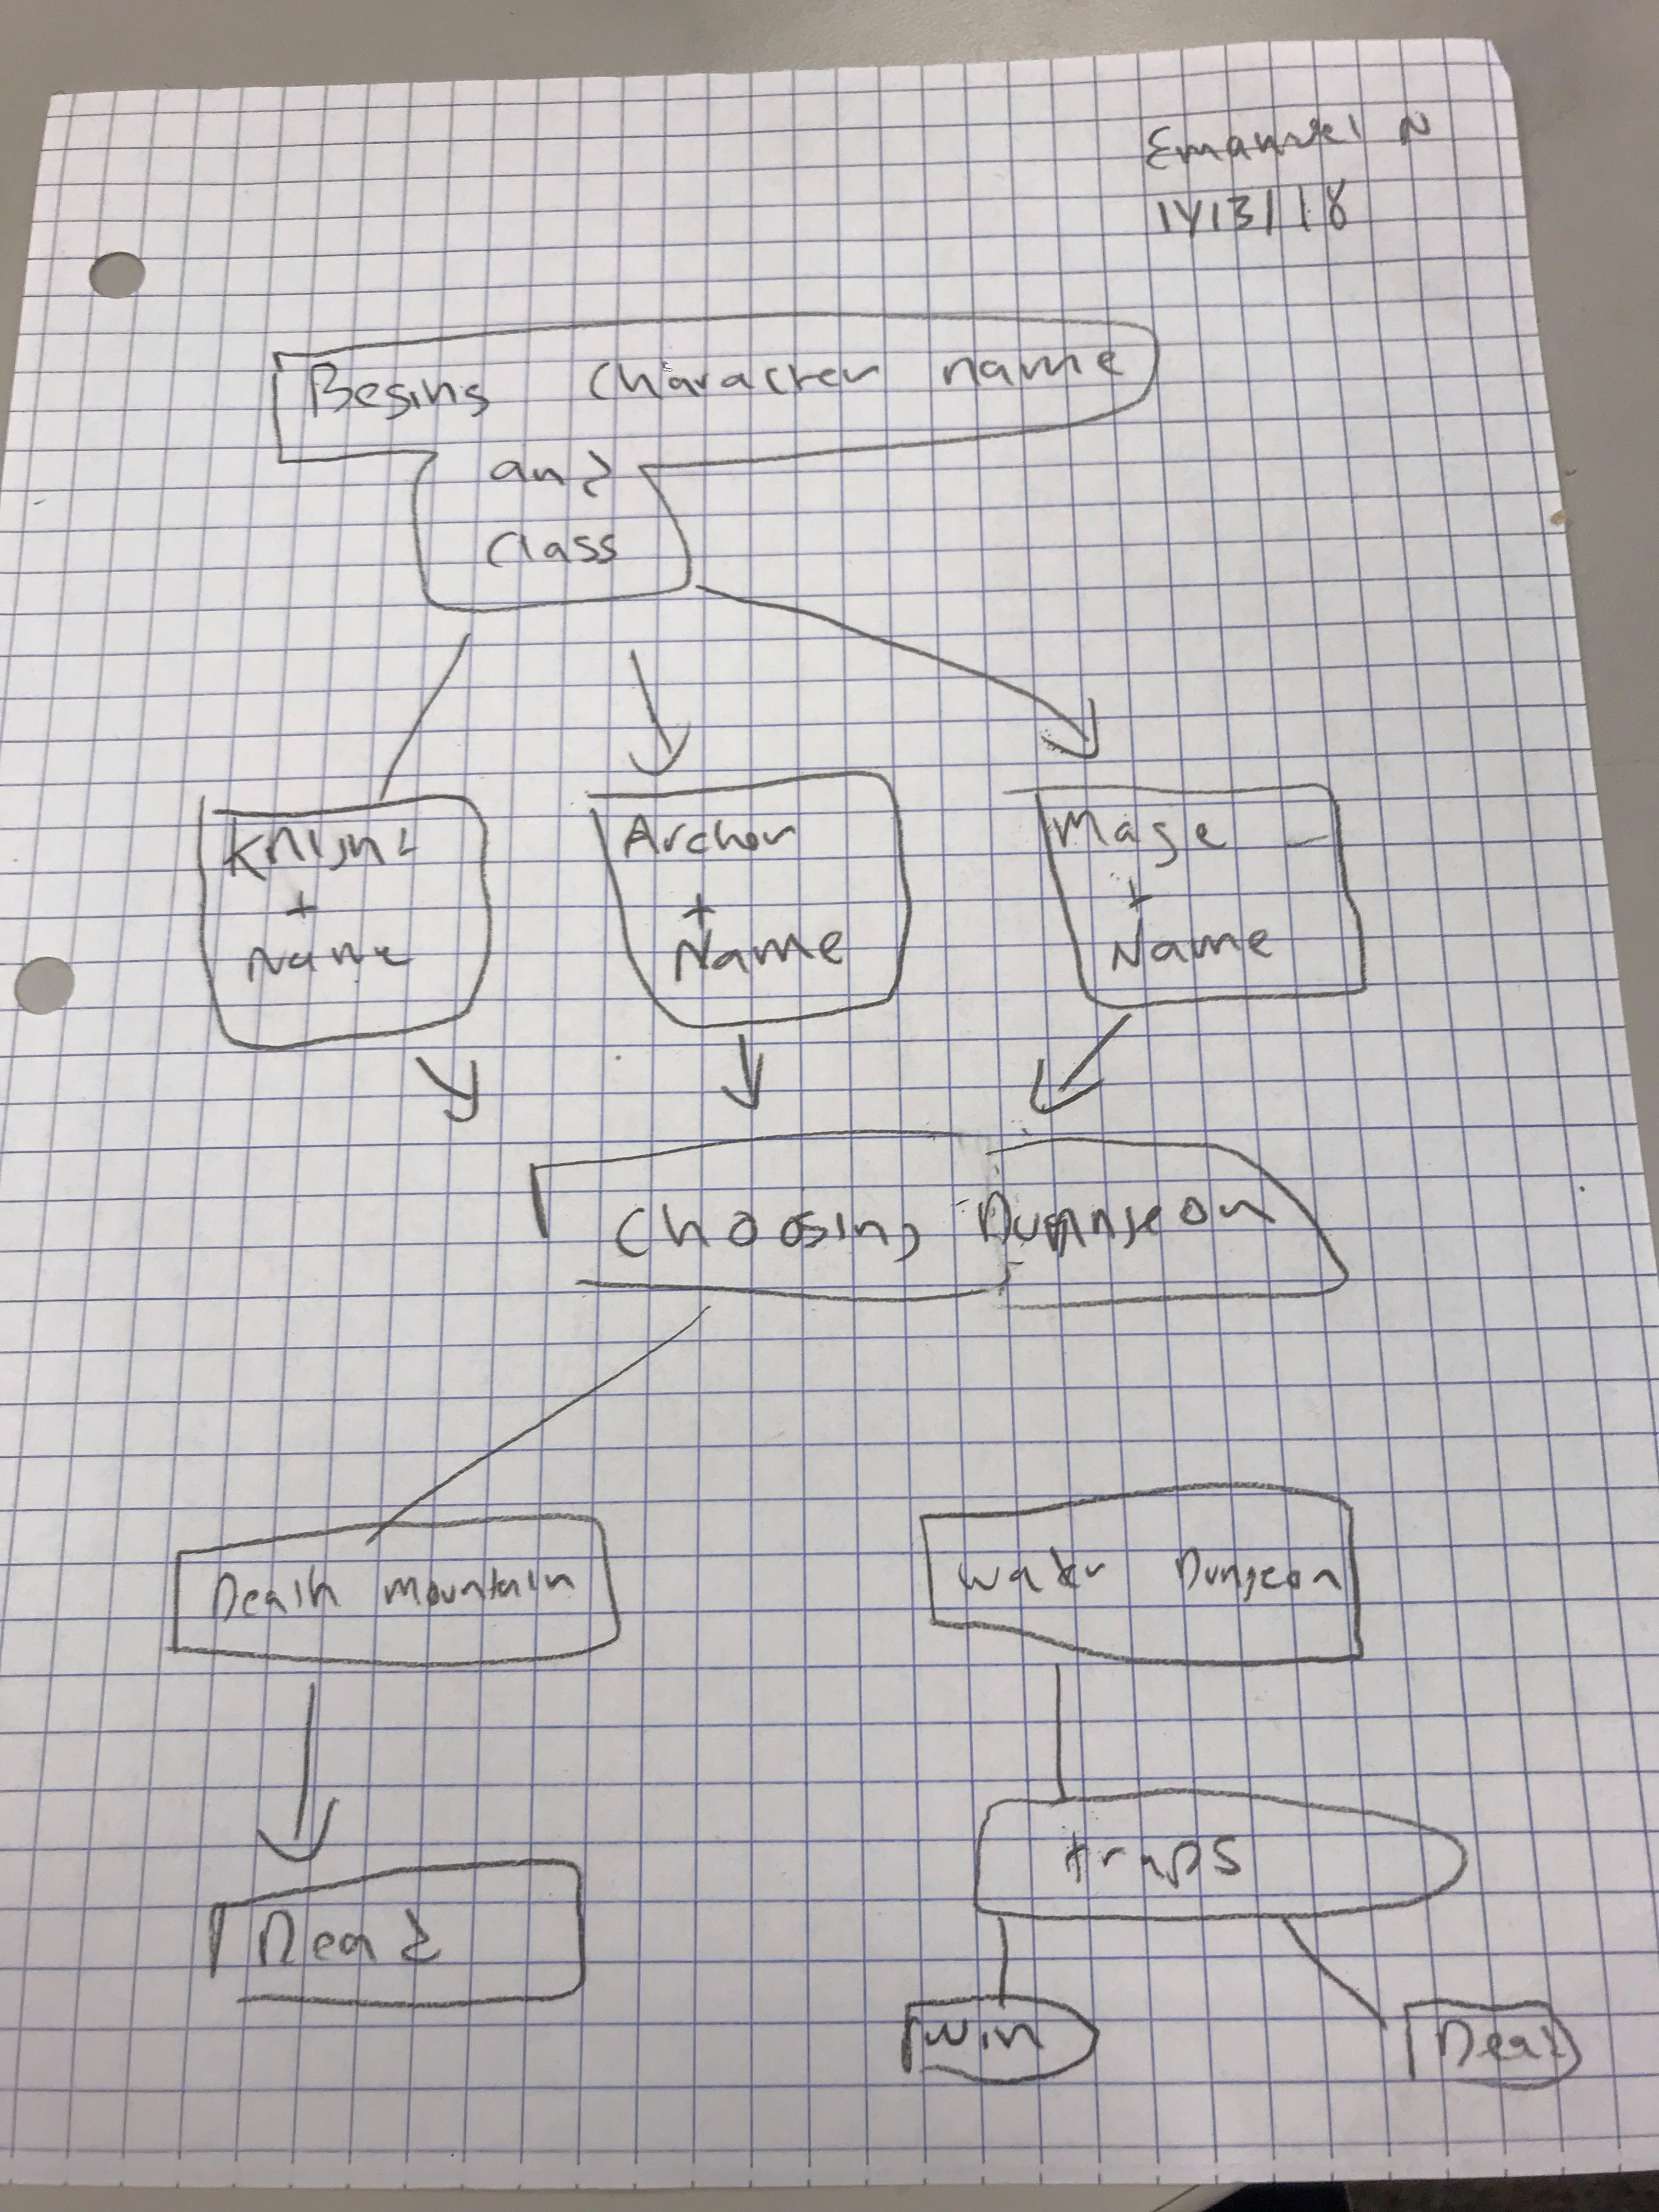 Emanuel N
11/13/18
Begins Character name
and
Class
Knight
+
Name
Archer
+
Name
Mage
+
Name
Choosing Dungeon
Death mountain
Water Dungeon
traps
Dead
win
Dead